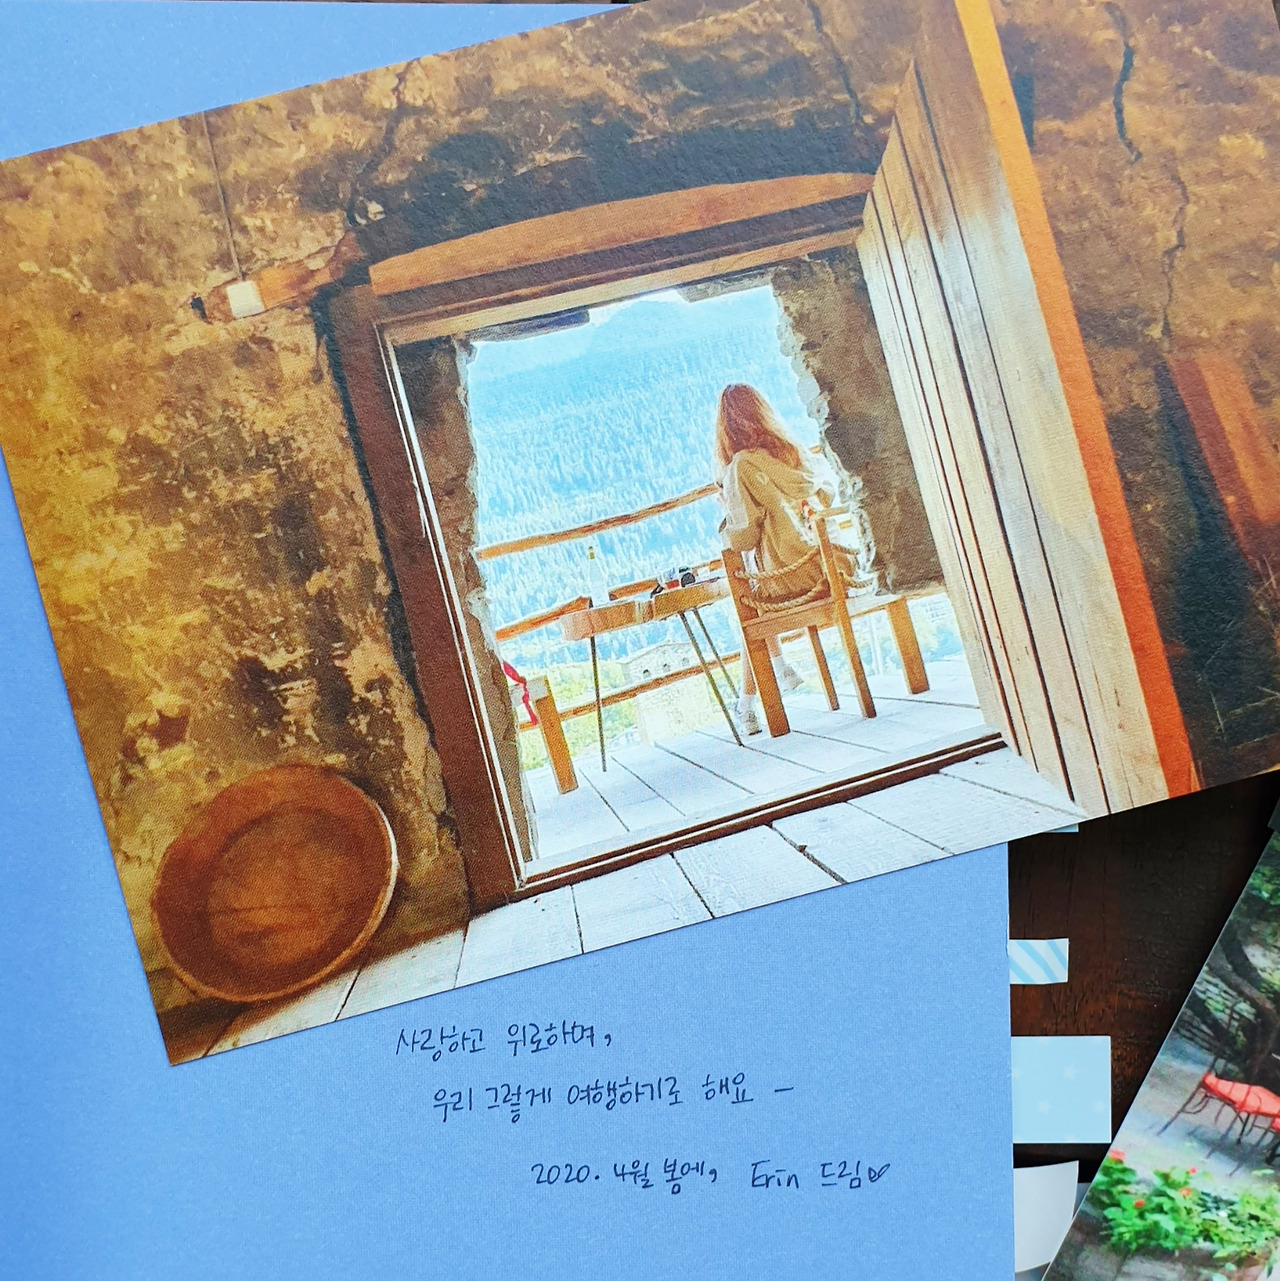 사랑하고 위로하며,
우리 그렇게 여행하기로 해요 –
2020. 4월 봄에, Erin 드림♡